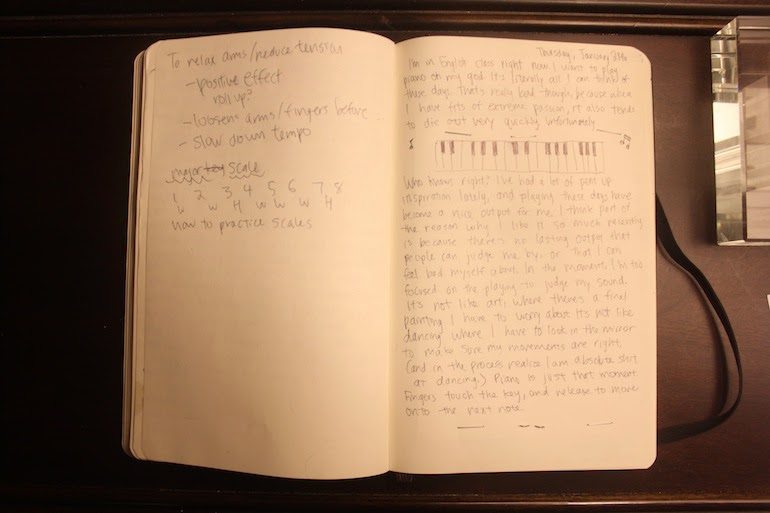 To relax arms/reduce tension
- positive effect
roll up?
- loosens arms/fingers before
- slow down tempo
major key scale
1 2 3 4 5 6 7 8
W W H W W W H
how to practice scales
Thursday, January
I'm in English class right now. I want to play
piano oh my god. It's literally all I can think of
these days. That's really bad though, because when
I have fits of extreme passion, it also tends
to die out very quickly. Unfortunately.
Who knows right? I've had a lot of pent up
inspiration lately, and playing these days have
become a nice output for me. I think part of
the reason why I like it so much recently
is because there's no lasting output that
people can judge me by. Or that I can
feel bad myself about. In the moment, I'm too
focused on the playing to judge my sound.
It's not like art, where there's a final
painting I have to worry about. It's not like
dancing where I have to look in the mirror
to make sure my movements are right,
(and in the process realize I am absolute shit
at dancing.) Piano is just that moment.
Fingers touch the key, and release to move
onto the next note.